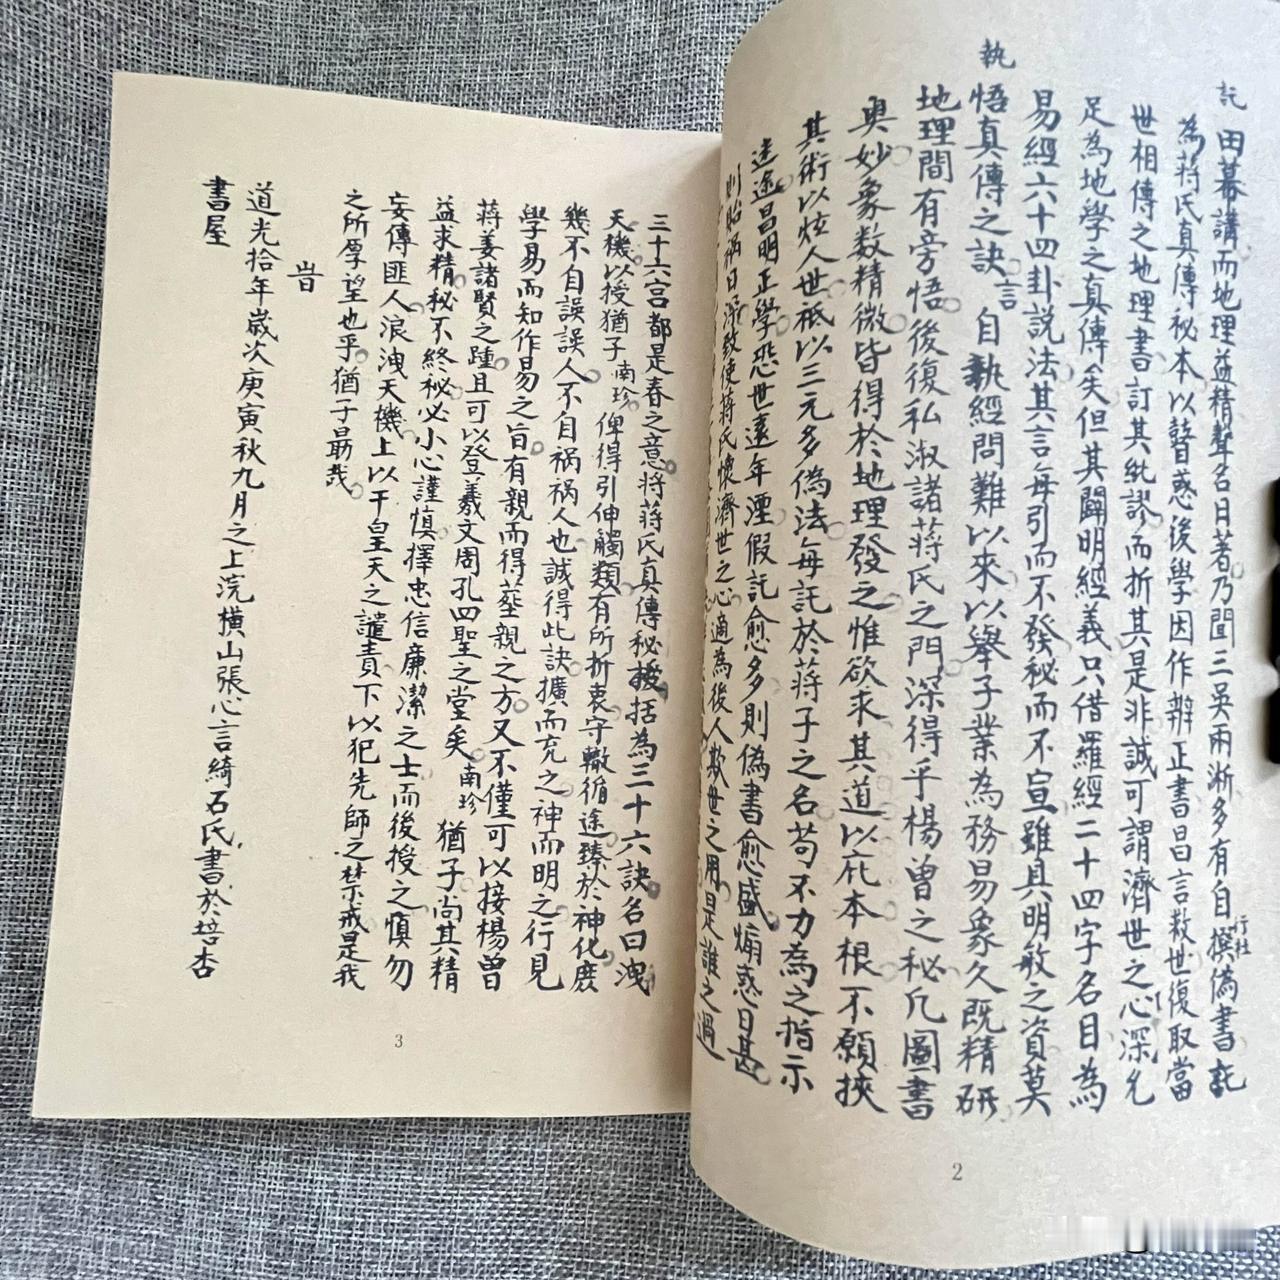 託
田幕講而地理益精聲名日著乃聞三吳兩淅多有自撰偽書託
行杜
為蔣氏真傳秘本以瞽惑後學因作辨正書昌言救世復取當
世相傳之地理書訂其紕謬而折其是非誠可謂濟世之心深允
足為地學之真傳矣但其闢明經義只借羅經二十四字名目為
易經六十四卦説法其言每引而不發秘而不宣雖具明敏之資莫
執
悟真傳之訣言自執經問難以來以舉子業為務易象久既精研
地理間有旁悟後復私淑諸蔣氏之門深得乎楊曾之秘凡圖書
奥妙象数精微皆得於地理發之惟欲求其道以庇本根不願挾
其術以炫人世祗以三元多偽法每託於蔣子之名苟不力為之指示
迷途昌明正學恐世遠年湮假託愈多則偽書愈盛煽惑日甚
則貽禍日深致使蔣氏懷濟世之心適為後人欺世之用是誰之過
2
三十六宮都是春之意將蔣氏真傳秘授括為三十六訣名曰洩
天機以授猶子南珍俾得引伸觸類有所折衷守轍循途臻於神化庶
幾不自誤誤人不自禍禍人也誠得此訣擴而充之神而明之行見
學易而知作易之旨有親而得莖親之方又不僅可以接楊曾
蔣姜諸賢之踵且可以登羲文周孔四聖之堂矣南珍猶子尚其精
益求精秘不終秘必小心謹慎擇忠信廉潔之士而後授之慎勿
妄傳匪人浪洩天機上以干皇天之譴責下以犯先師之禁戒是我
之所厚望也乎猶子勗哉
旹
道光拾年歲次庚寅秋九月之上浣橫山張心言綺石氏書於培杏
書屋
3